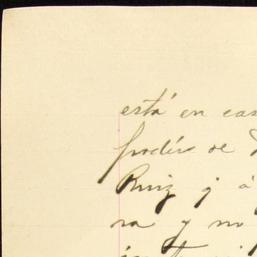 está en cas
poder de
Ruiz y á
ra y no